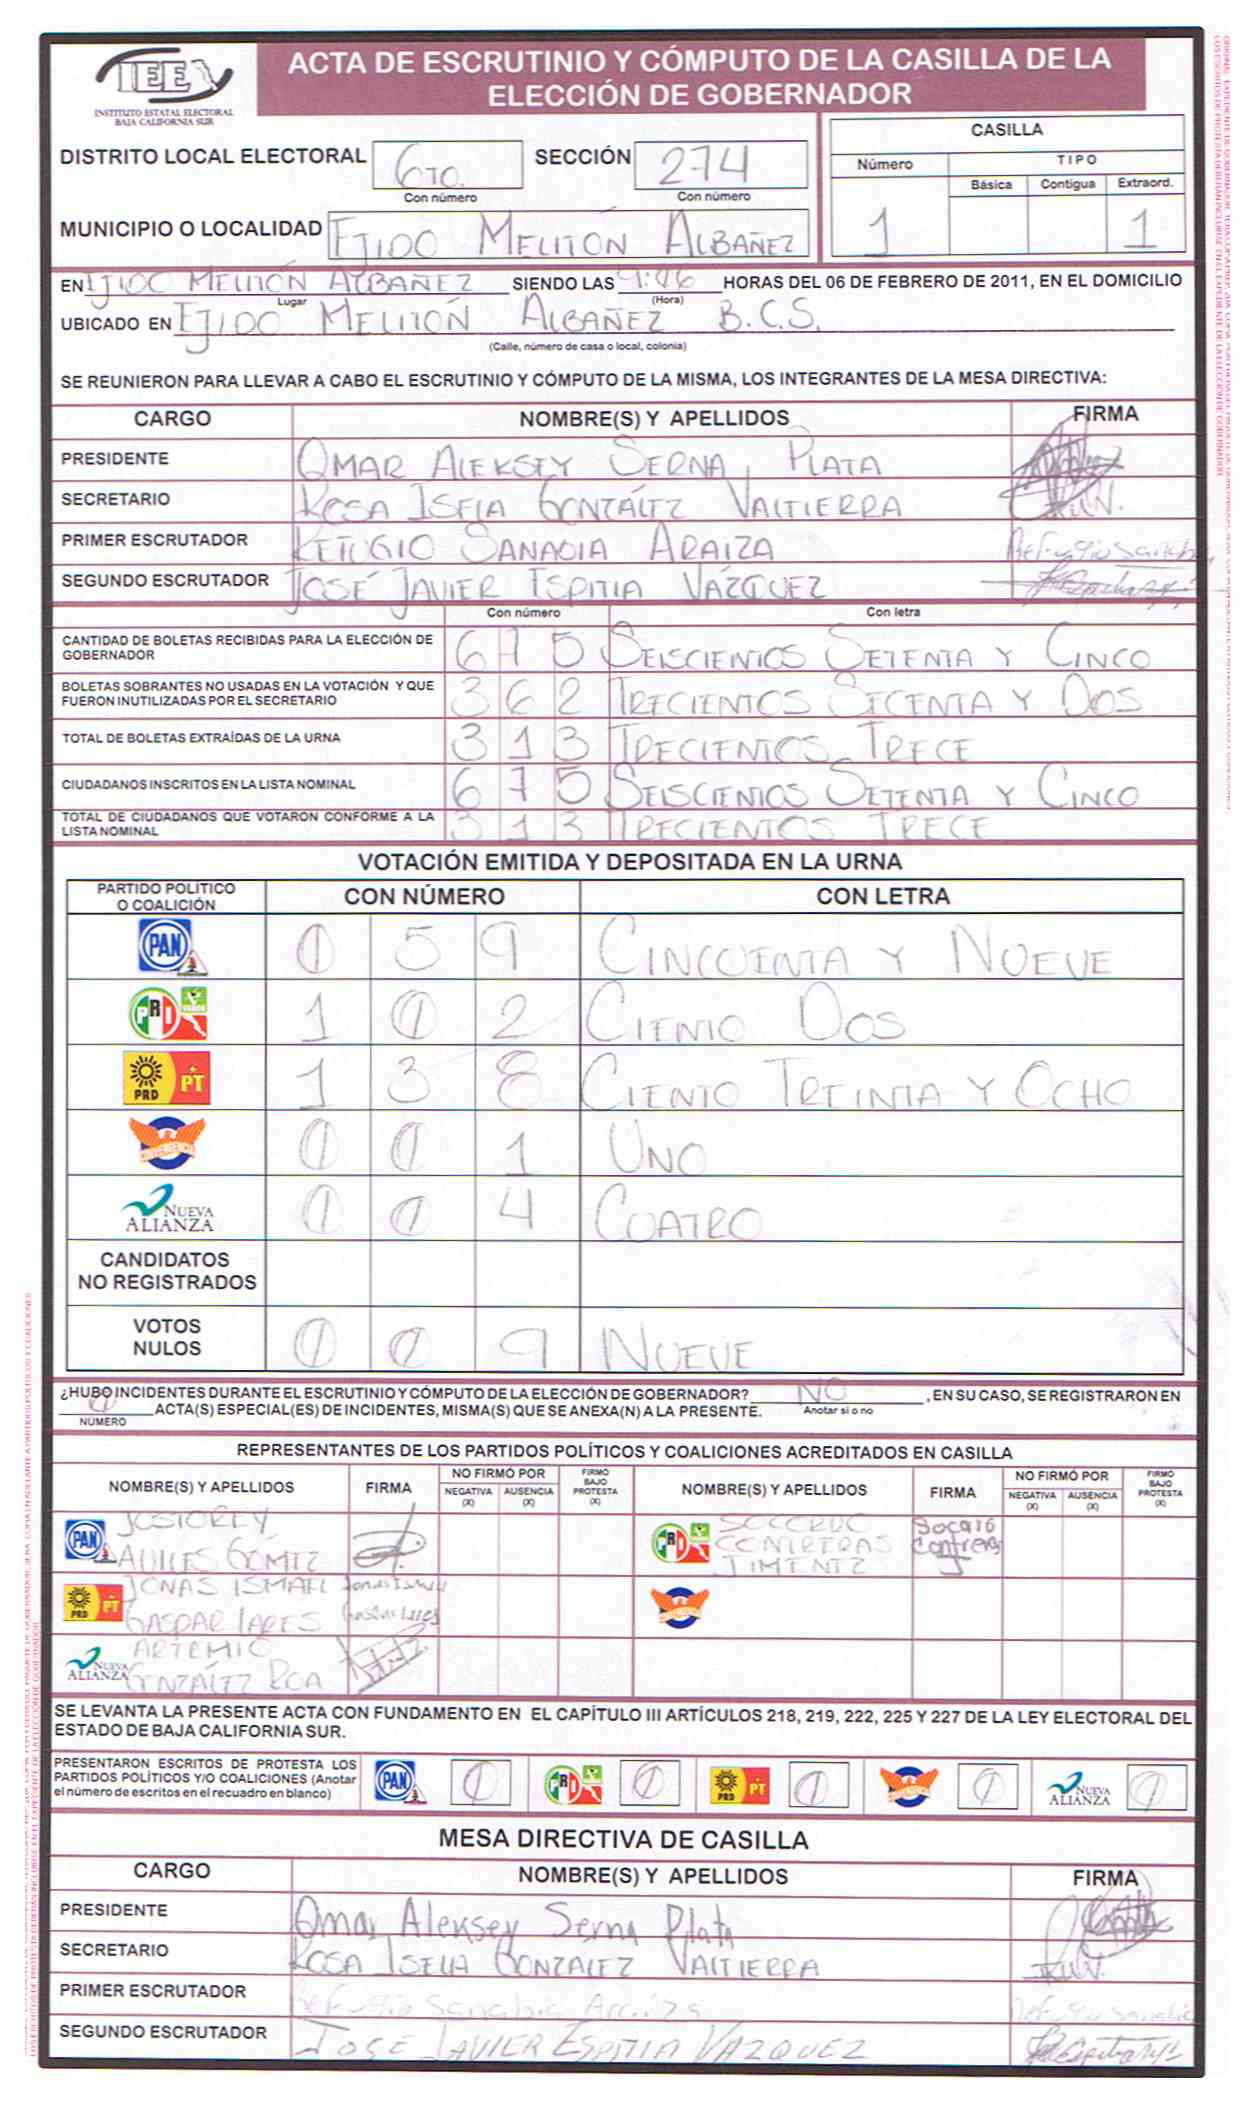 IEE
INSTITUTO ESTATAL ELECTORAL
BAJA CALIFORNIA SUR
ACTA DE ESCRUTINIO Y CÓMPUTO DE LA CASILLA DE LA
ELECCIÓN DE GOBERNADOR
DISTRITO LOCAL ELECTORAL 6TO. SECCIÓN 274
Con número Con número
MUNICIPIO O LOCALIDAD EJIDO MELITÓN ALBAÑEZ
CASILLA
Número TIPO
Básica Contigua Extraord.
1 1
EN EJIDO MELITÓN ALBAÑEZ SIENDO LAS HORAS DEL 06 DE FEBRERO DE 2011, EN EL DOMICILIO
Lugar (Hora)
UBICADO EN EJIDO MELITÓN ALBAÑEZ B.C.S.
(Calle, número de casa o local, colonia)
SE REUNIERON PARA LLEVAR A CABO EL ESCRUTINIO Y CÓMPUTO DE LA MISMA, LOS INTEGRANTES DE LA MESA DIRECTIVA:
CARGO NOMBRE(S) Y APELLIDOS FIRMA
PRESIDENTE OMAR ALEKSEY SERNA PLATA
SECRETARIO ROSA ISELA GONZÁLEZ VALTIERRA
PRIMER ESCRUTADOR REFUGIO SANABIA ARAIZA
SEGUNDO ESCRUTADOR JOSÉ JAVIER ESPITIA VÁZQUEZ
Con número Con letra
CANTIDAD DE BOLETAS RECIBIDAS PARA LA ELECCIÓN DE
GOBERNADOR 675 SEISCIENTOS SETENTA Y CINCO
BOLETAS SOBRANTES NO USADAS EN LA VOTACIÓN Y QUE
FUERON INUTILIZADAS POR EL SECRETARIO 362 TRECIENTOS SECENTA Y DOS
TOTAL DE BOLETAS EXTRAÍDAS DE LA URNA 313 TRECIENTOS TRECE
CIUDADANOS INSCRITOS EN LA LISTA NOMINAL 675 SEISCIENTOS SETENTA Y CINCO
TOTAL DE CIUDADANOS QUE VOTARON CONFORME A LA
LISTA NOMINAL 313 TRECIENTOS TRECE
VOTACIÓN EMITIDA Y DEPOSITADA EN LA URNA
PARTIDO POLÍTICO
O COALICIÓN CON NÚMERO CON LETRA
PAN 0 5 9 CINCUENTA Y NUEVE
PRI VERDE 1 0 2 CIENTO DOS
PRD PT 1 3 8 CIENTO TREINTA Y OCHO
CONVERGENCIA 0 0 1 UNO
NUEVA ALIANZA 0 0 4 CUATRO
CANDIDATOS
NO REGISTRADOS
VOTOS
NULOS 0 0 9 NUEVE
¿HUBO INCIDENTES DURANTE EL ESCRUTINIO Y CÓMPUTO DE LA ELECCIÓN DE GOBERNADOR? NO , EN SU CASO, SE REGISTRARON EN
0 ACTA(S) ESPECIAL(ES) DE INCIDENTES, MISMA(S) QUE SE ANEXA(N) A LA PRESENTE. Anotar si o no
NÚMERO
REPRESENTANTES DE LOS PARTIDOS POLÍTICOS Y COALICIONES ACREDITADOS EN CASILLA
NOMBRE(S) Y APELLIDOS FIRMA NO FIRMÓ POR NEGATIVA (X) AUSENCIA (X) FIRMÓ BAJO PROTESTA (X) NOMBRE(S) Y APELLIDOS FIRMA NO FIRMÓ POR NEGATIVA (X) AUSENCIA (X) FIRMÓ BAJO PROTESTA (X)
PAN AVILES GÓMEZ
PRI SOCORRO CONTRERAS JIMENEZ
PRD PT JONAS ISMAEL GASPAR
NUEVA ALIANZA ARTEMIO GONZÁLEZ ROA
SE LEVANTA LA PRESENTE ACTA CON FUNDAMENTO EN EL CAPÍTULO III ARTÍCULOS 218, 219, 222, 225 Y 227 DE LA LEY ELECTORAL DEL
ESTADO DE BAJA CALIFORNIA SUR.
PRESENTARON ESCRITOS DE PROTESTA LOS
PARTIDOS POLÍTICOS Y/O COALICIONES (Anotar
el número de escritos en el recuadro en blanco)
PAN 0 PRI 0 PRD PT 0 0 NUEVA ALIANZA 0
MESA DIRECTIVA DE CASILLA
CARGO NOMBRE(S) Y APELLIDOS FIRMA
PRESIDENTE Omar Aleksey Serna Plata
SECRETARIO ROSA ISELA GONZALEZ VALTIERRA
PRIMER ESCRUTADOR Refugio Sanabia Araiza
SEGUNDO ESCRUTADOR JOSE JAVIER ESPITIA VAZQUEZ